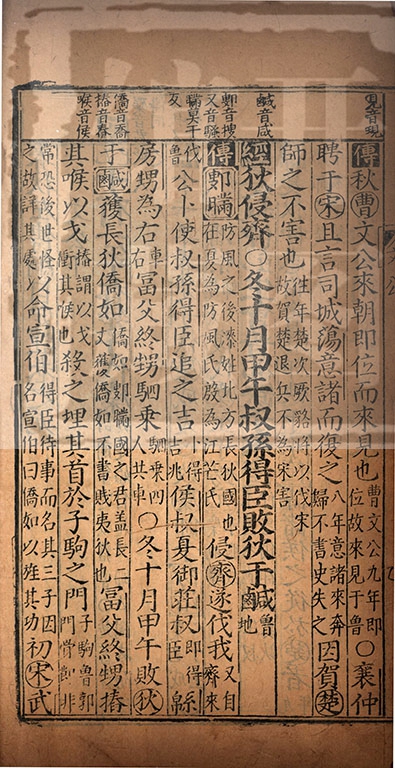 見音現
鹹音咸
鄋音搜
又音騷
瞞莫干
反
僑音喬
摏音舂
喉音侯
傳秋曹文公來朝即位而來見也曹文公九年即位故來見于魯○襄仲
聘于宋且言司城蕩意諸而復之八年意諸來奔歸不書史失之因賀楚
師之不害也往年楚次厥貉將以伐宋故賀楚退兵不為宋害
經狄侵齊○冬十月甲午叔孫得臣敗狄于鹹魯地
傳鄋瞞防風之後漆姓北方長狄國也在夏為防風氏殷為江芒氏侵齊遂伐我又自齊來
伐魯公卜使叔孫得臣追之吉卜得吉兆侯叔夏御莊叔即得臣緜
房甥為右為車右冨父終甥駟乘駟乘四人共車○冬十月甲午敗狄
于鹹獲長狄僑如僑如鄋瞞國之君盖長二丈獲僑如不書賊夷狄也冨父終甥摏
其喉以戈摏謂以戈衝其喉也殺之埋其首於子駒之門子駒魯郭門骨節非
常恐後世怪之故詳其處以命宣伯得臣待事而名其三子因名宣伯曰僑如以旌其功初宋武